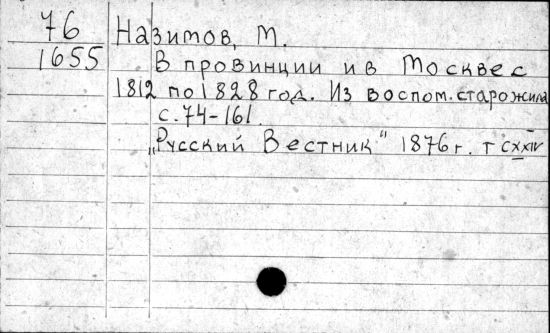 76 Назимов, М.
1655 В провинции и в Москве с
1812 по 1828 год. Из воспом. старожила
с. 74-161.
„Русский Вестник" 1876 г. т CXXIV